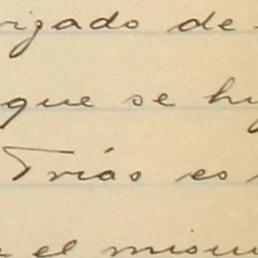 rizado de
que se hu
Trías es
el mism